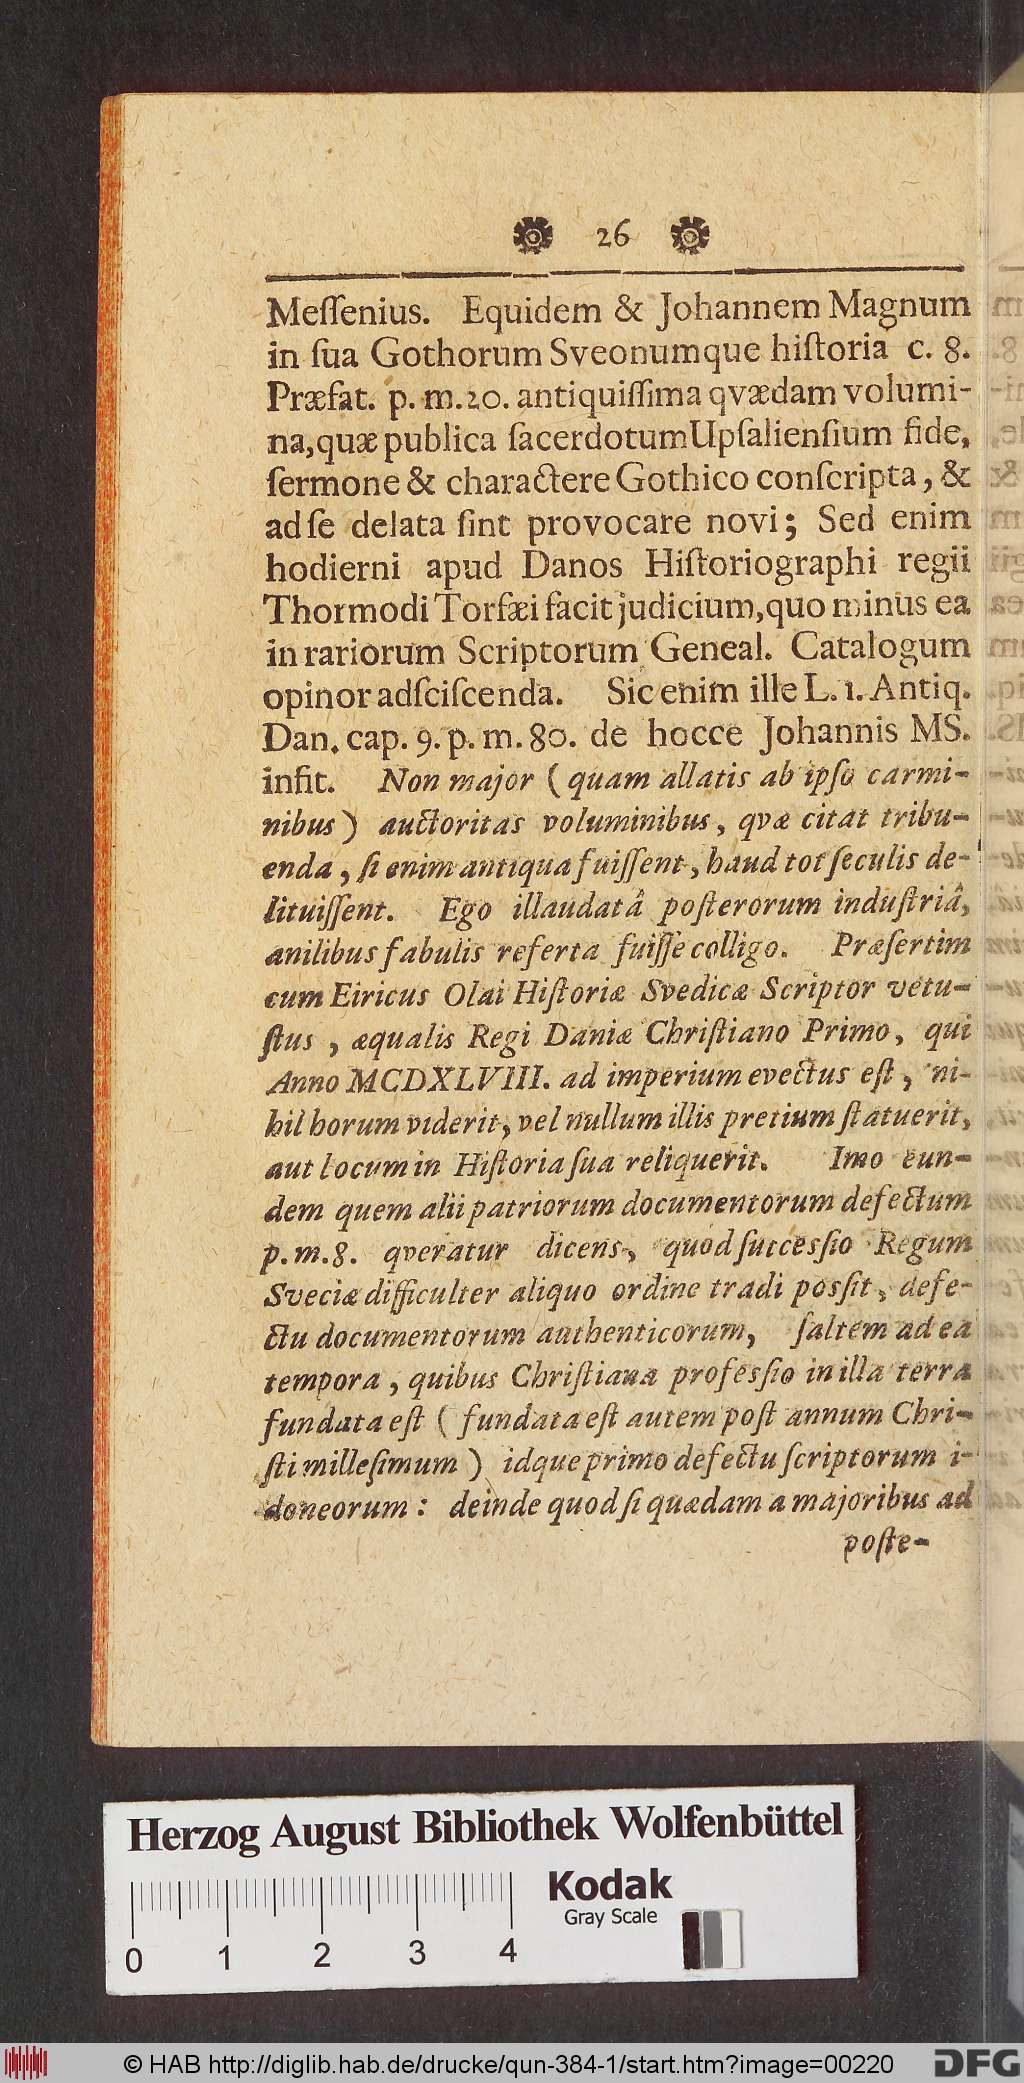 26
Meſſenius. Equidem & Johannem Magnum
in ſua Gothorum Sveonumque hiſtoria c. 8.
Præfat. p. m. 20. antiquiſſima qvædam volumi-
na, quæ publica ſacerdotum Upſalienſium fide,
ſermone & charactere Gothico conſcripta, &
ad ſe delata ſint provocare novi; Sed enim
hodierni apud Danos Hiſtoriographi regii
Thormodi Torfæi facit judicium, quo minus ea
in rariorum Scriptorum Geneal. Catalogum
opinor adſciſcenda. Sic enim ille L. 1. Antiq.
Dan. cap. 9. p. m. 80. de hocce Johannis MS.
infit. Non major (quam allatis ab ipſo carmi-
nibus) auctoritas voluminibus, qvæ citat tribu-
enda, ſi enim antiqua fuiſſent, haud tot ſeculis de-
lituiſſent. Ego illaudatâ poſterorum induſtriâ,
anilibus fabulis referta fuiſſe colligo. Præſertim
cum Eiricus Olai Hiſtoriæ Svedicæ Scriptor vetu-
ſtus, æqualis Regi Daniæ Chriſtiano Primo, qui
Anno MCDXLVIII. ad imperium evectus eſt, ni-
hil horum viderit, vel nullum illis pretium ſtatuerit,
aut locum in Hiſtoria ſua reliquerit. Imo eun-
dem quem alii patriorum documentorum defectum
p. m. 8. qveratur dicens, quod ſucceſſio Regum
Sveciæ difficulter aliquo ordine tradi poſſit, defe-
ctu documentorum authenticorum, ſaltem ad ea
tempora, quibus Chriſtiana profeſſio in illa terra
fundata eſt (fundata eſt autem poſt annum Chri-
ſti milleſimum) idque primo defectu ſcriptorum i-
doneorum: deinde quod ſi quædam a majoribus ad
poſte-
Herzog August Bibliothek Wolfenbüttel
Kodak
Gray Scale
0 1 2 3 4
© HAB http://diglib.hab.de/drucke/qun-384-1/start.htm?image=00220
DFG